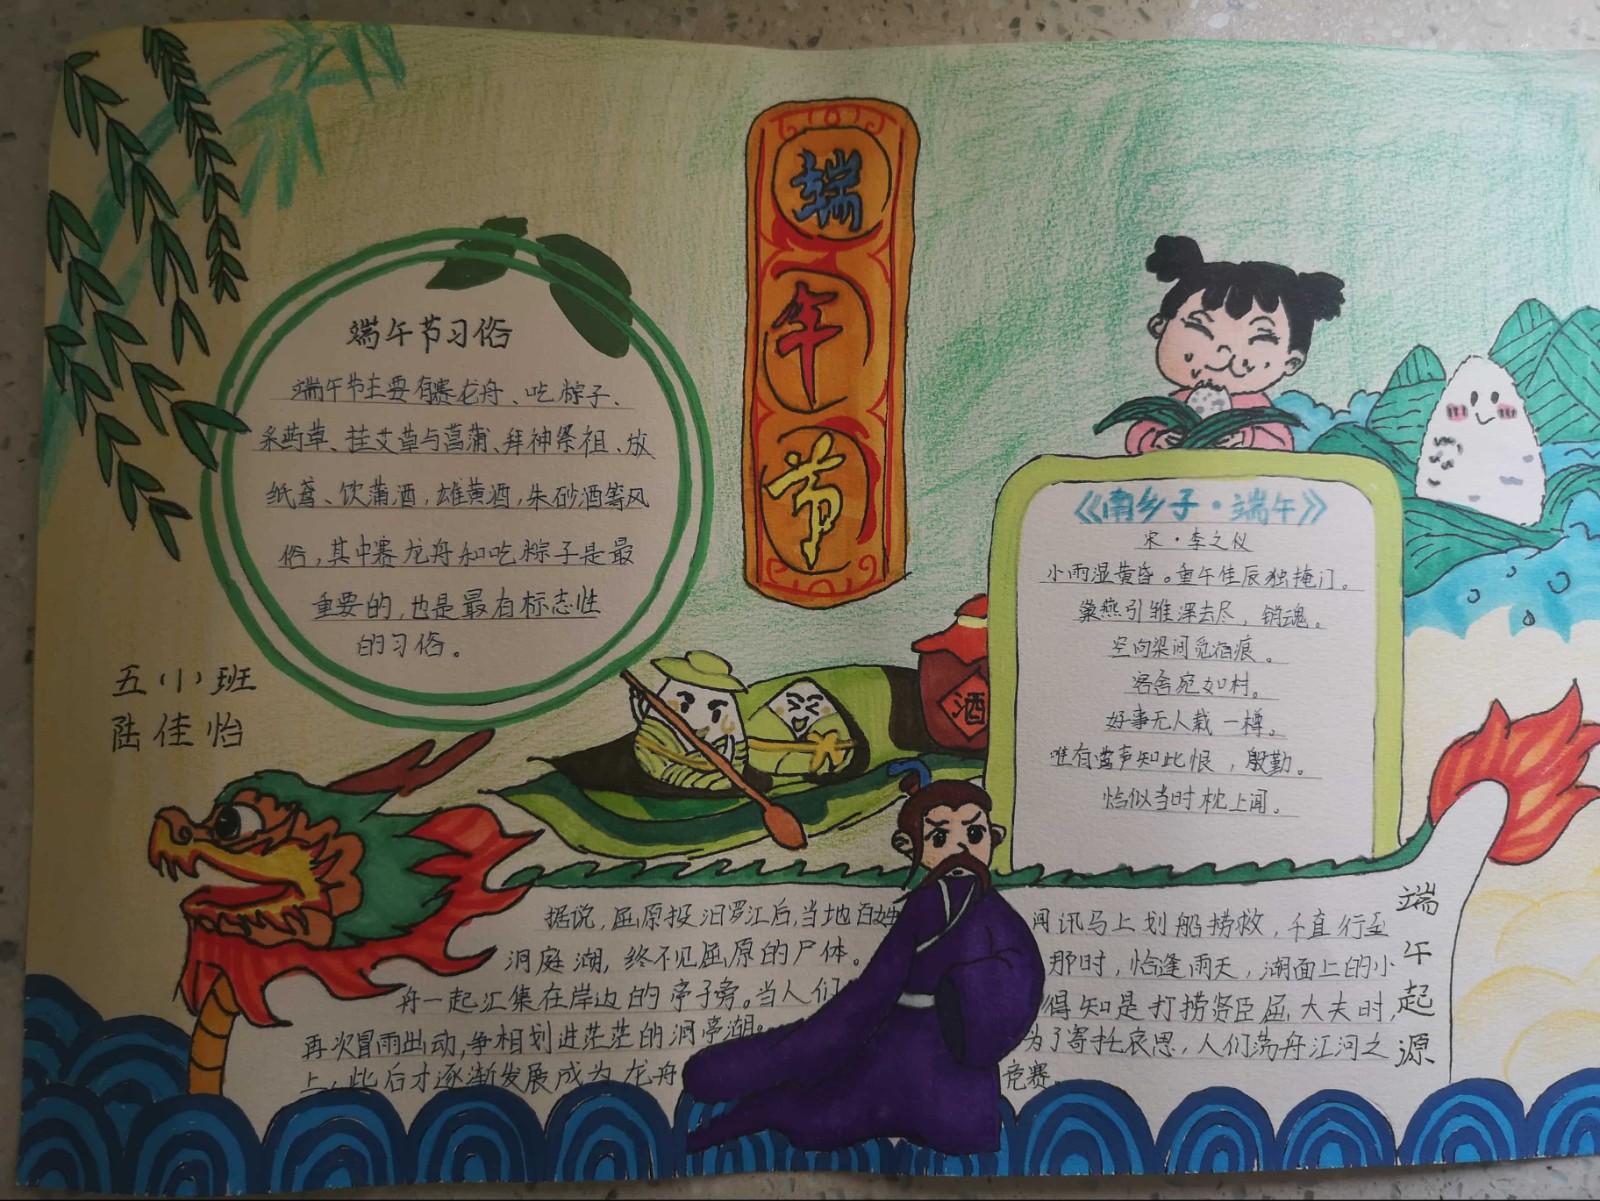 端午节
端午节习俗
端午节主要有赛龙舟、吃粽子、
采药草、挂艾草与菖蒲、拜神祭祖、放
纸鸢、饮蒲酒，雄黄酒，朱砂酒等风
俗，其中赛龙舟和吃粽子是最
重要的，也是最有标志性
的习俗。
五（1）班
陆佳怡
酒
《南乡子·端午》
宋·李之仪
小雨湿黄昏。重午佳辰独掩门。
巢燕引雏浑去尽，销魂。
空向梁间觅宿痕。
客舍宛如村。
好事无人载一樽。
唯有莺声知此恨，殷勤。
恰似当时枕上闻。
端午起源
据说，屈原投汨罗江后，当地百姓闻讯马上划船捞救，千直行至
洞庭湖，终不见屈原的尸体。那时，恰逢雨天，湖面上的小
舟一起汇集在岸边的亭子旁。当人们得知是打捞贤臣屈大夫时，
再次冒雨出动，争相划进茫茫的洞亭湖。为了寄托哀思，人们荡舟江河之
上，此后才逐渐发展成为龙舟竞赛。